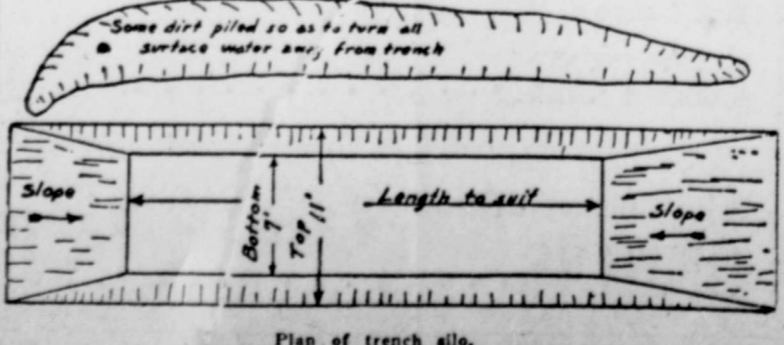 Some dirt piled so as to turn all
surface water away from trench
Slope
Bottom
7'
Top 11'
Length to suit
Slope
Plan of trench silo.